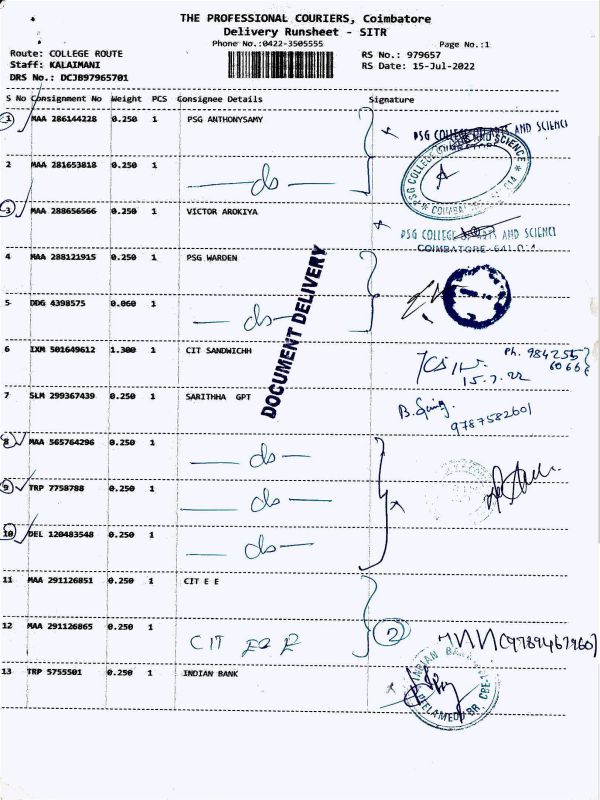 THE PROFESSIONAL COURIERS, Coimbatore
Delivery Runsheet - SITR
Phone No.:0422-3505555
Page No.:1
Route: COLLEGE ROUTE
RS No.: 979657
Staff: KALAIMANI
RS Date: 15-Jul-2022
DRS No.: DCJB97965701
S No Consignment No Weight PCS Consignee Details Signature
1 MAA 286144228 0.250 1 PSG ANTHONYSAMY
PSG COLLEGE OF ARTS AND SCIENCE
PSG COLLEGE OF ARTS AND SCIENCE
2 MAA 281653818 0.250 1 do
3 MAA 288656566 0.250 1 VICTOR AROKIYA
PSG COLLEGE OF ARTS AND SCIENCE
COIMBATORE-641 014
4 MAA 288121915 0.250 1 PSG WARDEN
DOCUMENT DELIVERY
5 DDG 4398575 0.060 1 do
6 IXM 501649612 1.300 1 CIT SANDWICHH
Ph. 984255
6066
15.7.22
7 SLM 299367439 0.250 1 SARITHHA GPT
9787582601
8 MAA 565764296 0.250 1 do
9 TRP 7758788 0.250 1 do
10 DEL 120483548 0.250 1 do
11 MAA 291126851 0.250 1 CIT E E
12 MAA 291126865 0.250 1 CIT
2
(9789467960)
13 TRP 5755501 0.250 1 INDIAN BANK
INDIAN BANK
PEELAMEDU BR, CBE-